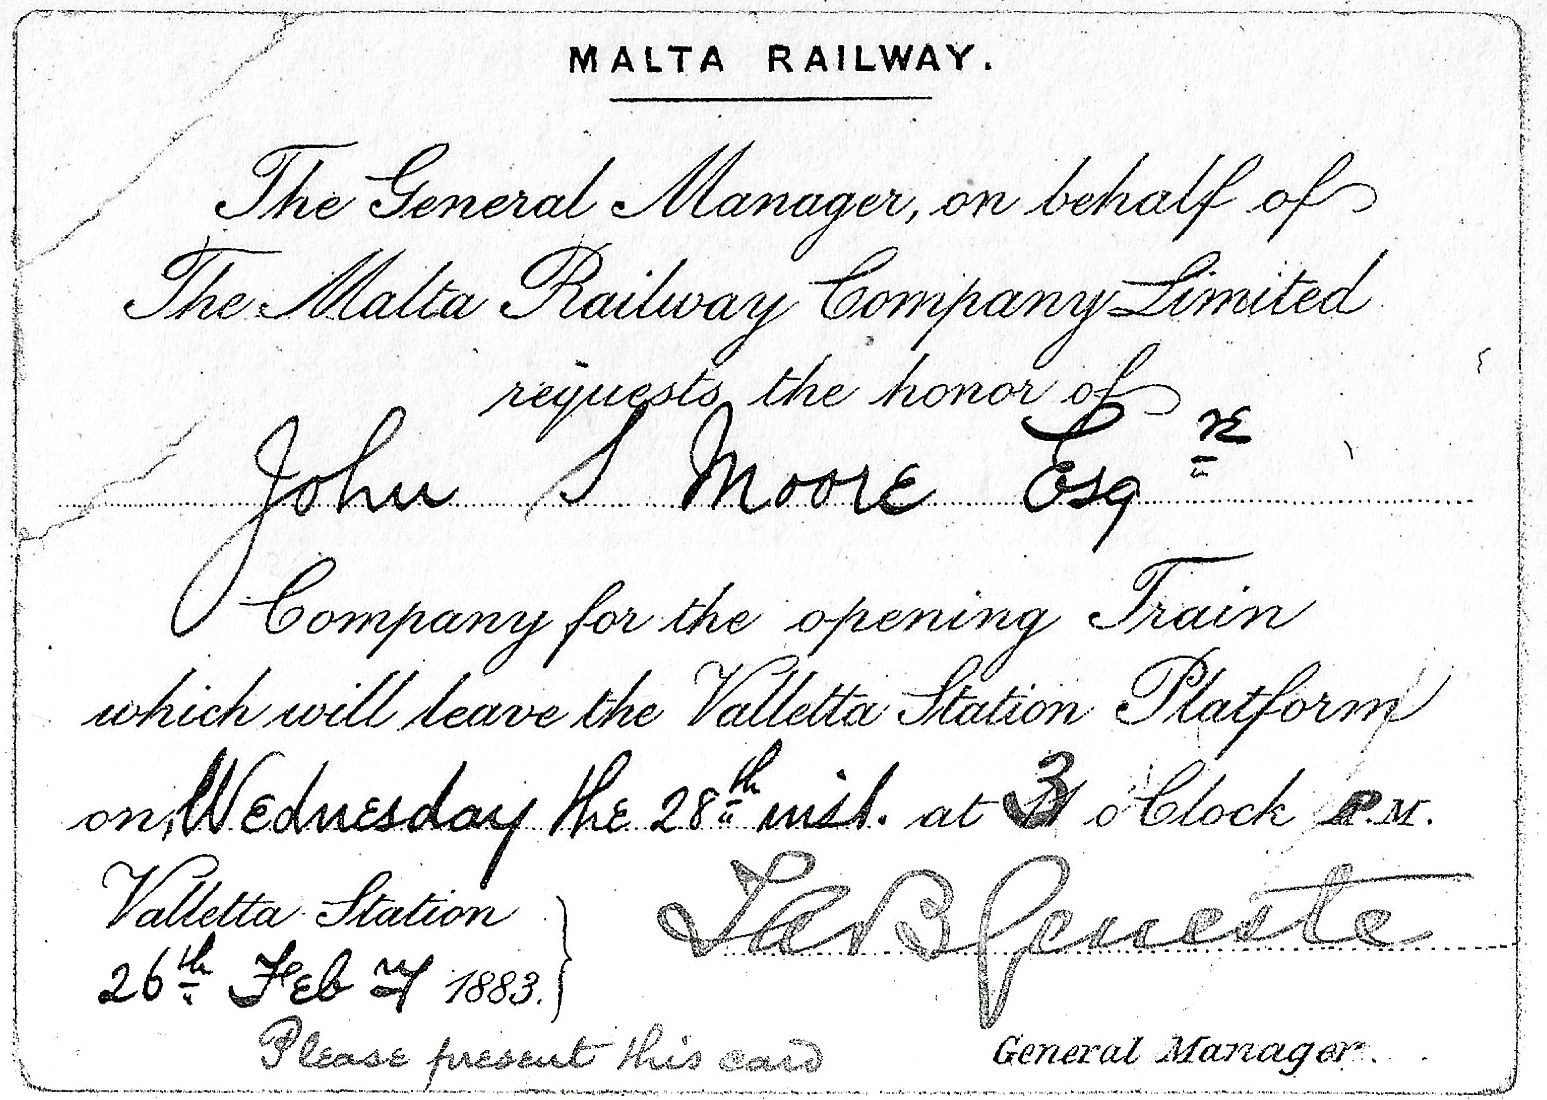 MALTA RAILWAY.
The General Manager, on behalf of
The Malta Railway Company Limited
requests the honor of
John S Moore Esqre
Company for the opening Train
which will leave the Valletta Station Platform
on, Wednesday the 28th inst. at 3 o'Clock P.M.
Valletta Station
26th Feby 1883.
Geneste
Please present this card
General Manager.